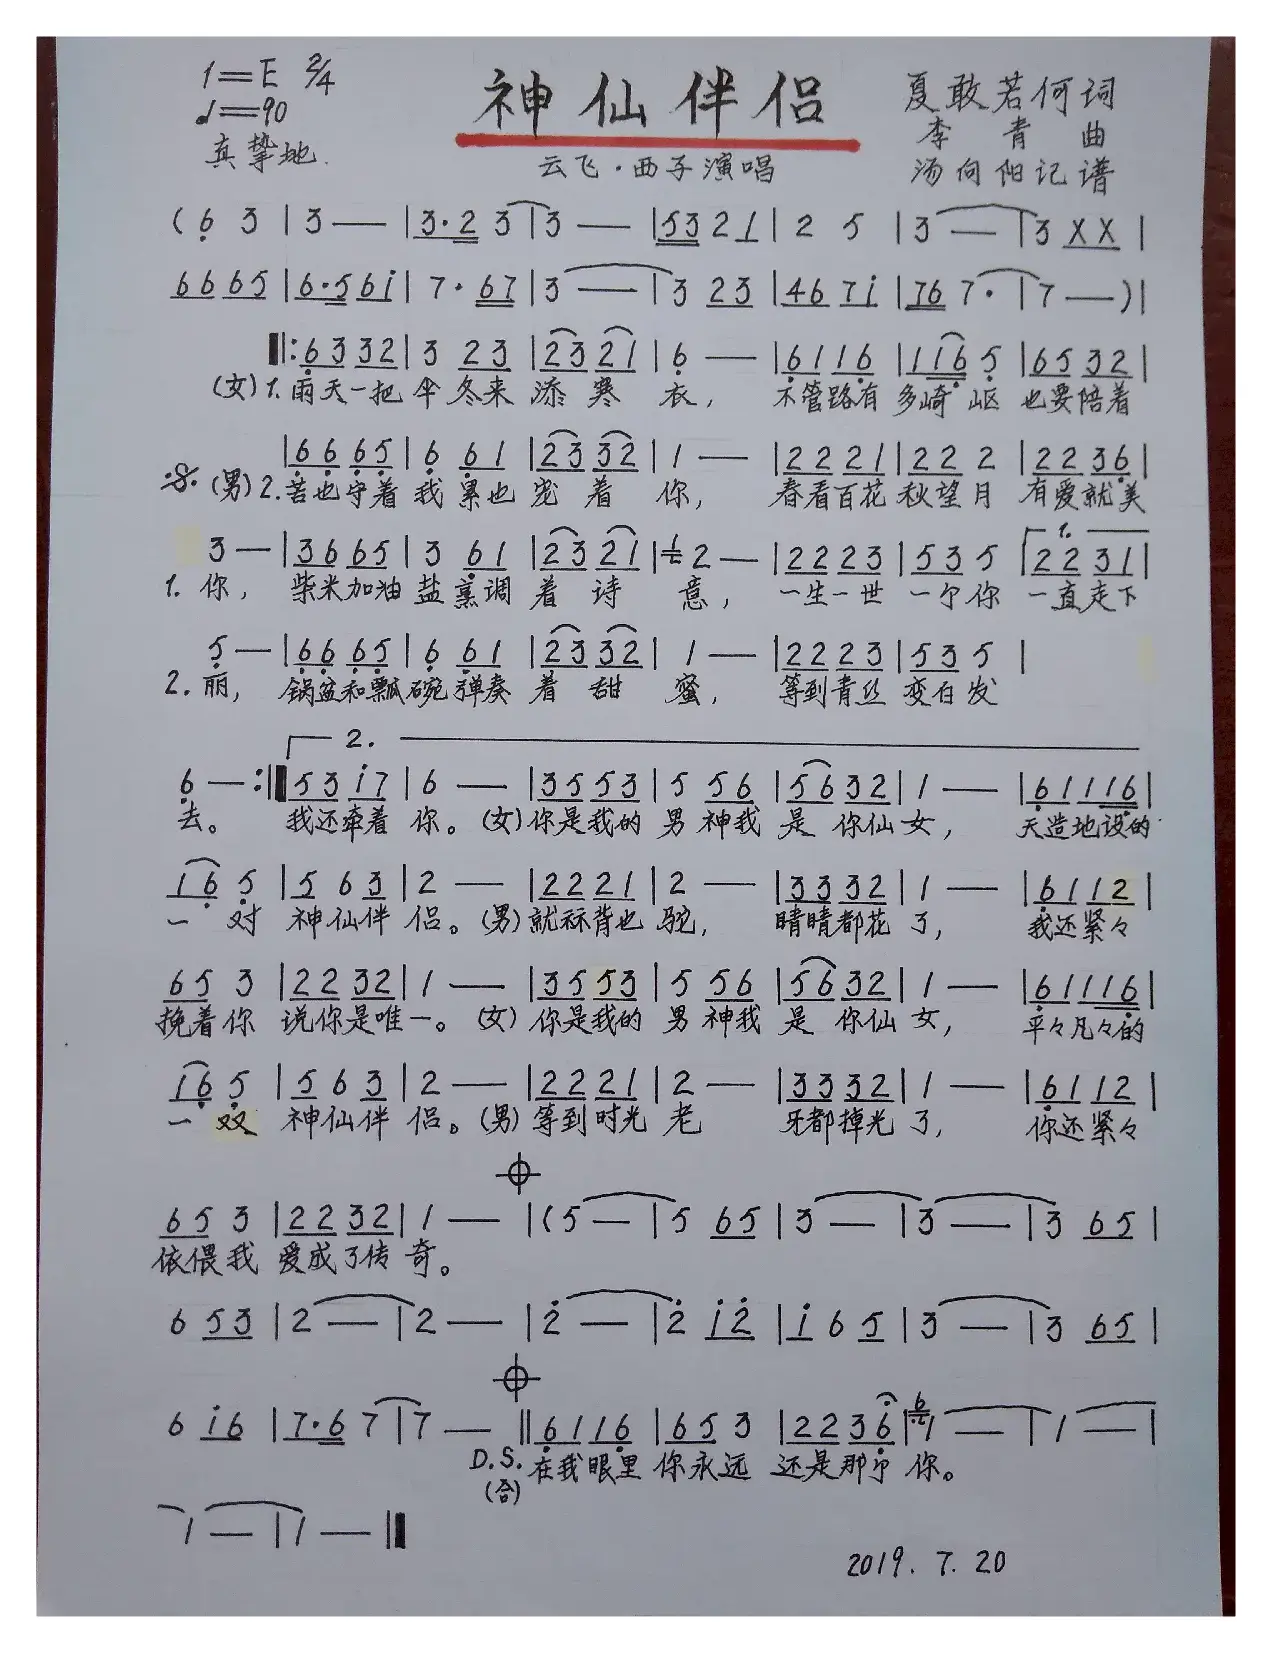 1=E 2/4
♩=90
真挚地
神仙伴侣
云飞·西子演唱
夏敢若何词
李青曲
汤向阳记谱
(6̣ 3 | 3 — | 3·2 3 | 3 — | 53 2 1 | 2 5 | 3 — | 3 X X |
66 65 | 6·5 6i | 7· 67 | 3 — | 3 23 | 46 7i | 76 7· | 7 — ) |
‖: 6̣3 32 | 3 23 | 23 21 | 6̣ — | 6̣1 16̣ | 116̣ 5̣ | 65 32 |
(女) 1. 雨天一把 伞 冬来 添 寒 衣, 不管路有 多崎岖 也要陪着
| 6̣6̣ 6̣5̣ | 6̣ 6̣1 | 23 32 | 1 — | 22 21 | 22 2 | 22 36̣ |
𝄋 (男) 2. 苦也守着 我 累也 宠 着 你, 春看百花 秋望月 有爱就美
3 — | 36 65 | 3 6̣1 | 23 21 | 1 2 — | 22 23 | 53 5 | 1. 22 31 |
1. 你, 柴米加油 盐 烹调 着 诗 意, 一生一世 一个你 一直走下
5̣ — | 6̣6̣ 6̣5̣ | 6̣ 6̣1 | 23 32 | 1 — | 22 23 | 53 5 |
2. 丽, 锅盆和瓢 碗 弹奏 着 甜 蜜, 等到青丝 变白发
2.
6̣ — :‖ 53 i7 | 6 — | 35 53 | 5 56 | 56 32 | 1 — | 6̣1 116̣ |
去。 我还牵着 你。(女) 你是我的 男 神我 是 你仙 女, 天造地设的
16̣ 5̣ | 5 6 3 | 2 — | 22 21 | 2 — | 33 32 | 1 — | 6̣1 12 |
一 对 神仙伴 侣。(男) 就 背也 驼, 睛睛都花 了, 我还紧々
65 3 | 22 32 | 1 — | 35 53 | 5 56 | 56 32 | 1 — | 6̣1 116̣ |
挽着你 说你是唯 一。(女) 你是我的 男 神我 是 你仙 女, 平々凡々的
16̣ 5̣ | 5 6 3 | 2 — | 22 21 | 2 — | 33 32 | 1 — | 6̣1 12 |
一 双 神仙伴 侣。(男) 等到时光 老 牙都掉光 了, 你还紧々
65 3 | 22 32 | 1 — | (5 — | 5 65 | 3 — | 3 — | 3 65 |
依偎我 爱成了传 奇。
6 53 | 2 — | 2 — | 2̇ — | 2̇ i2̇ | i 6 5 | 3 — | 3 65 |
6 i6 | 7·6 7 | 7 — ‖ 6̣1 16̣ | 65 3 | 22 36̣ | 6 1 — | 1 — |
D.S. (合) 在我眼里 你永远 还是那个 你。
1 — | 1 — ‖
2019.7.20